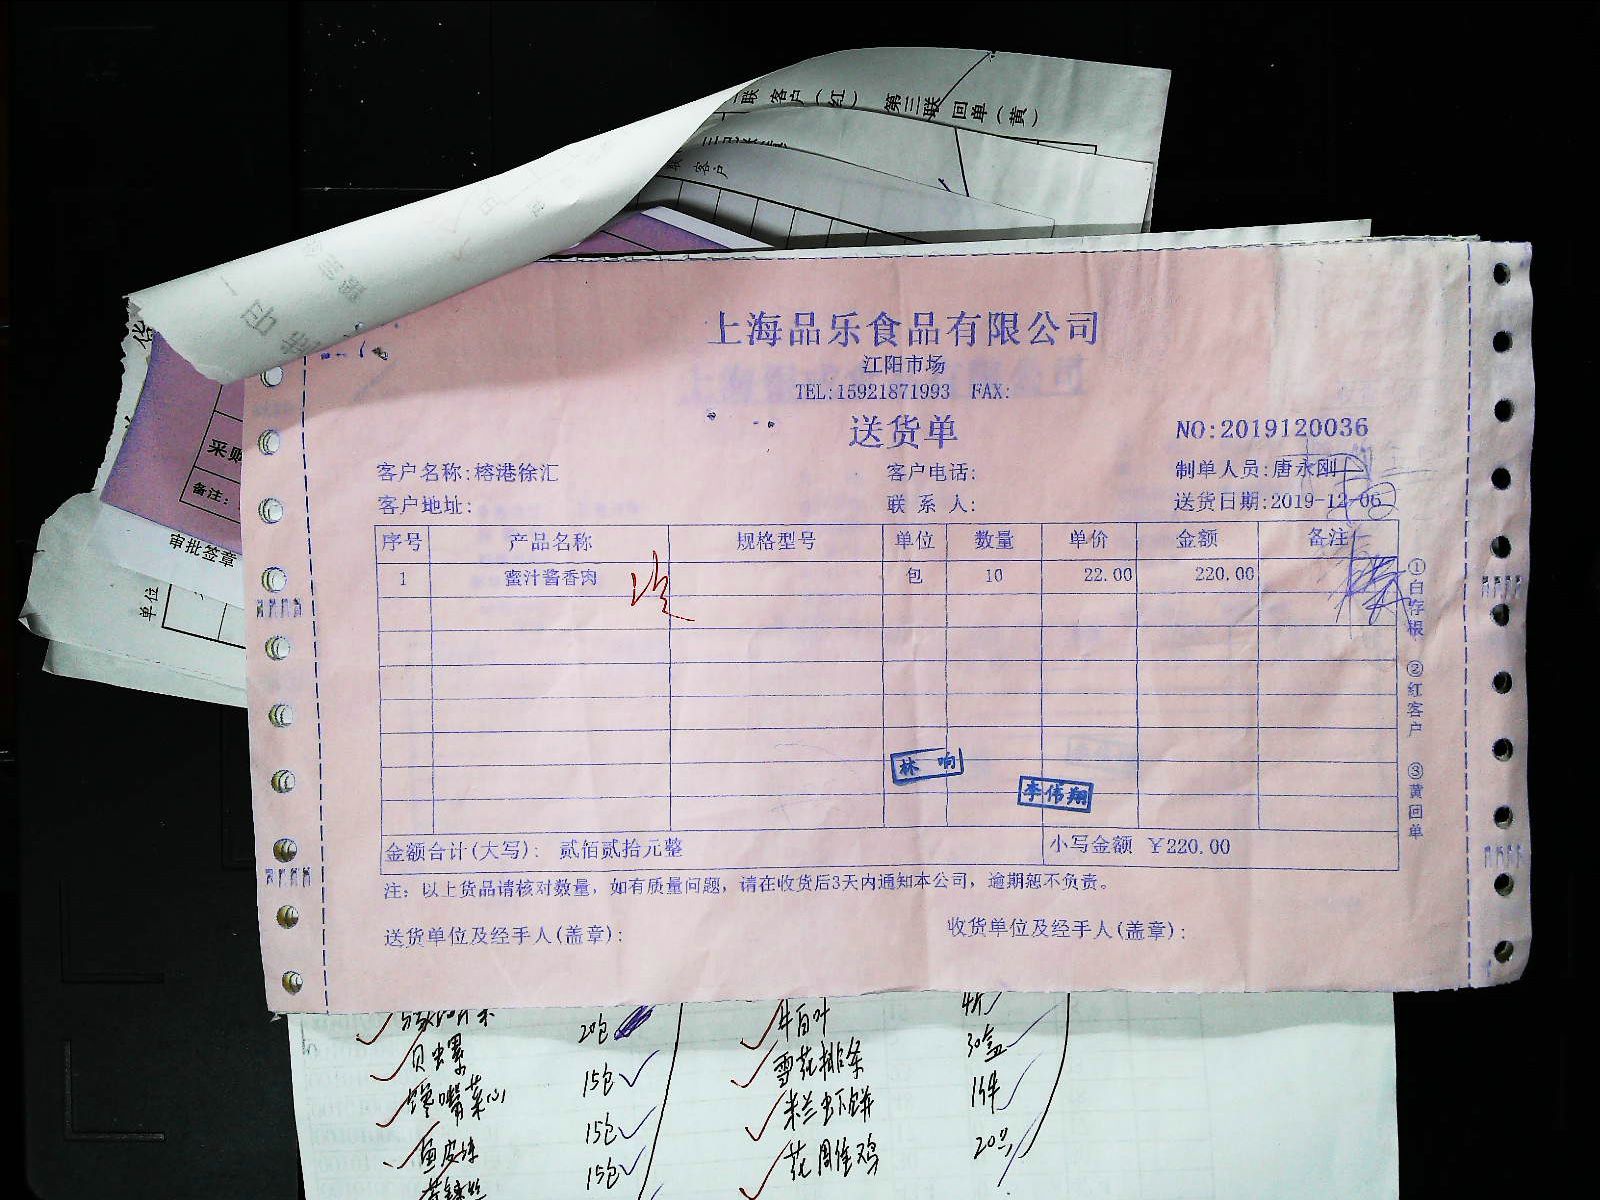 联 客户(红) 第三联 回单(黄)
客户
上海品乐食品有限公司
江阳市场
TEL:15921871993 FAX:
送货单
NO:2019120036
客户名称:榕港徐汇 客户电话: 制单人员:唐永刚
客户地址: 联系人: 送货日期:2019-12-06
序号 产品名称 规格型号 单位 数量 单价 金额 备注
1 蜜汁酱香肉 包 10 22.00 220.00
林响
李伟翔
金额合计(大写): 贰佰贰拾元整 小写金额 ¥220.00
注: 以上货品请核对数量, 如有质量问题, 请在收货后3天内通知本公司, 逾期恕不负责。
送货单位及经手人(盖章): 收货单位及经手人(盖章):
①白存根 ②红客户 ③黄回单
采购
备注:
审批签章
单位
20包 牛百叶
贝虫累 30盒
馋嘴菜心 15包 雪花排条
15包 米兰虾饼
鱼皮 15包 花雕醉鸡